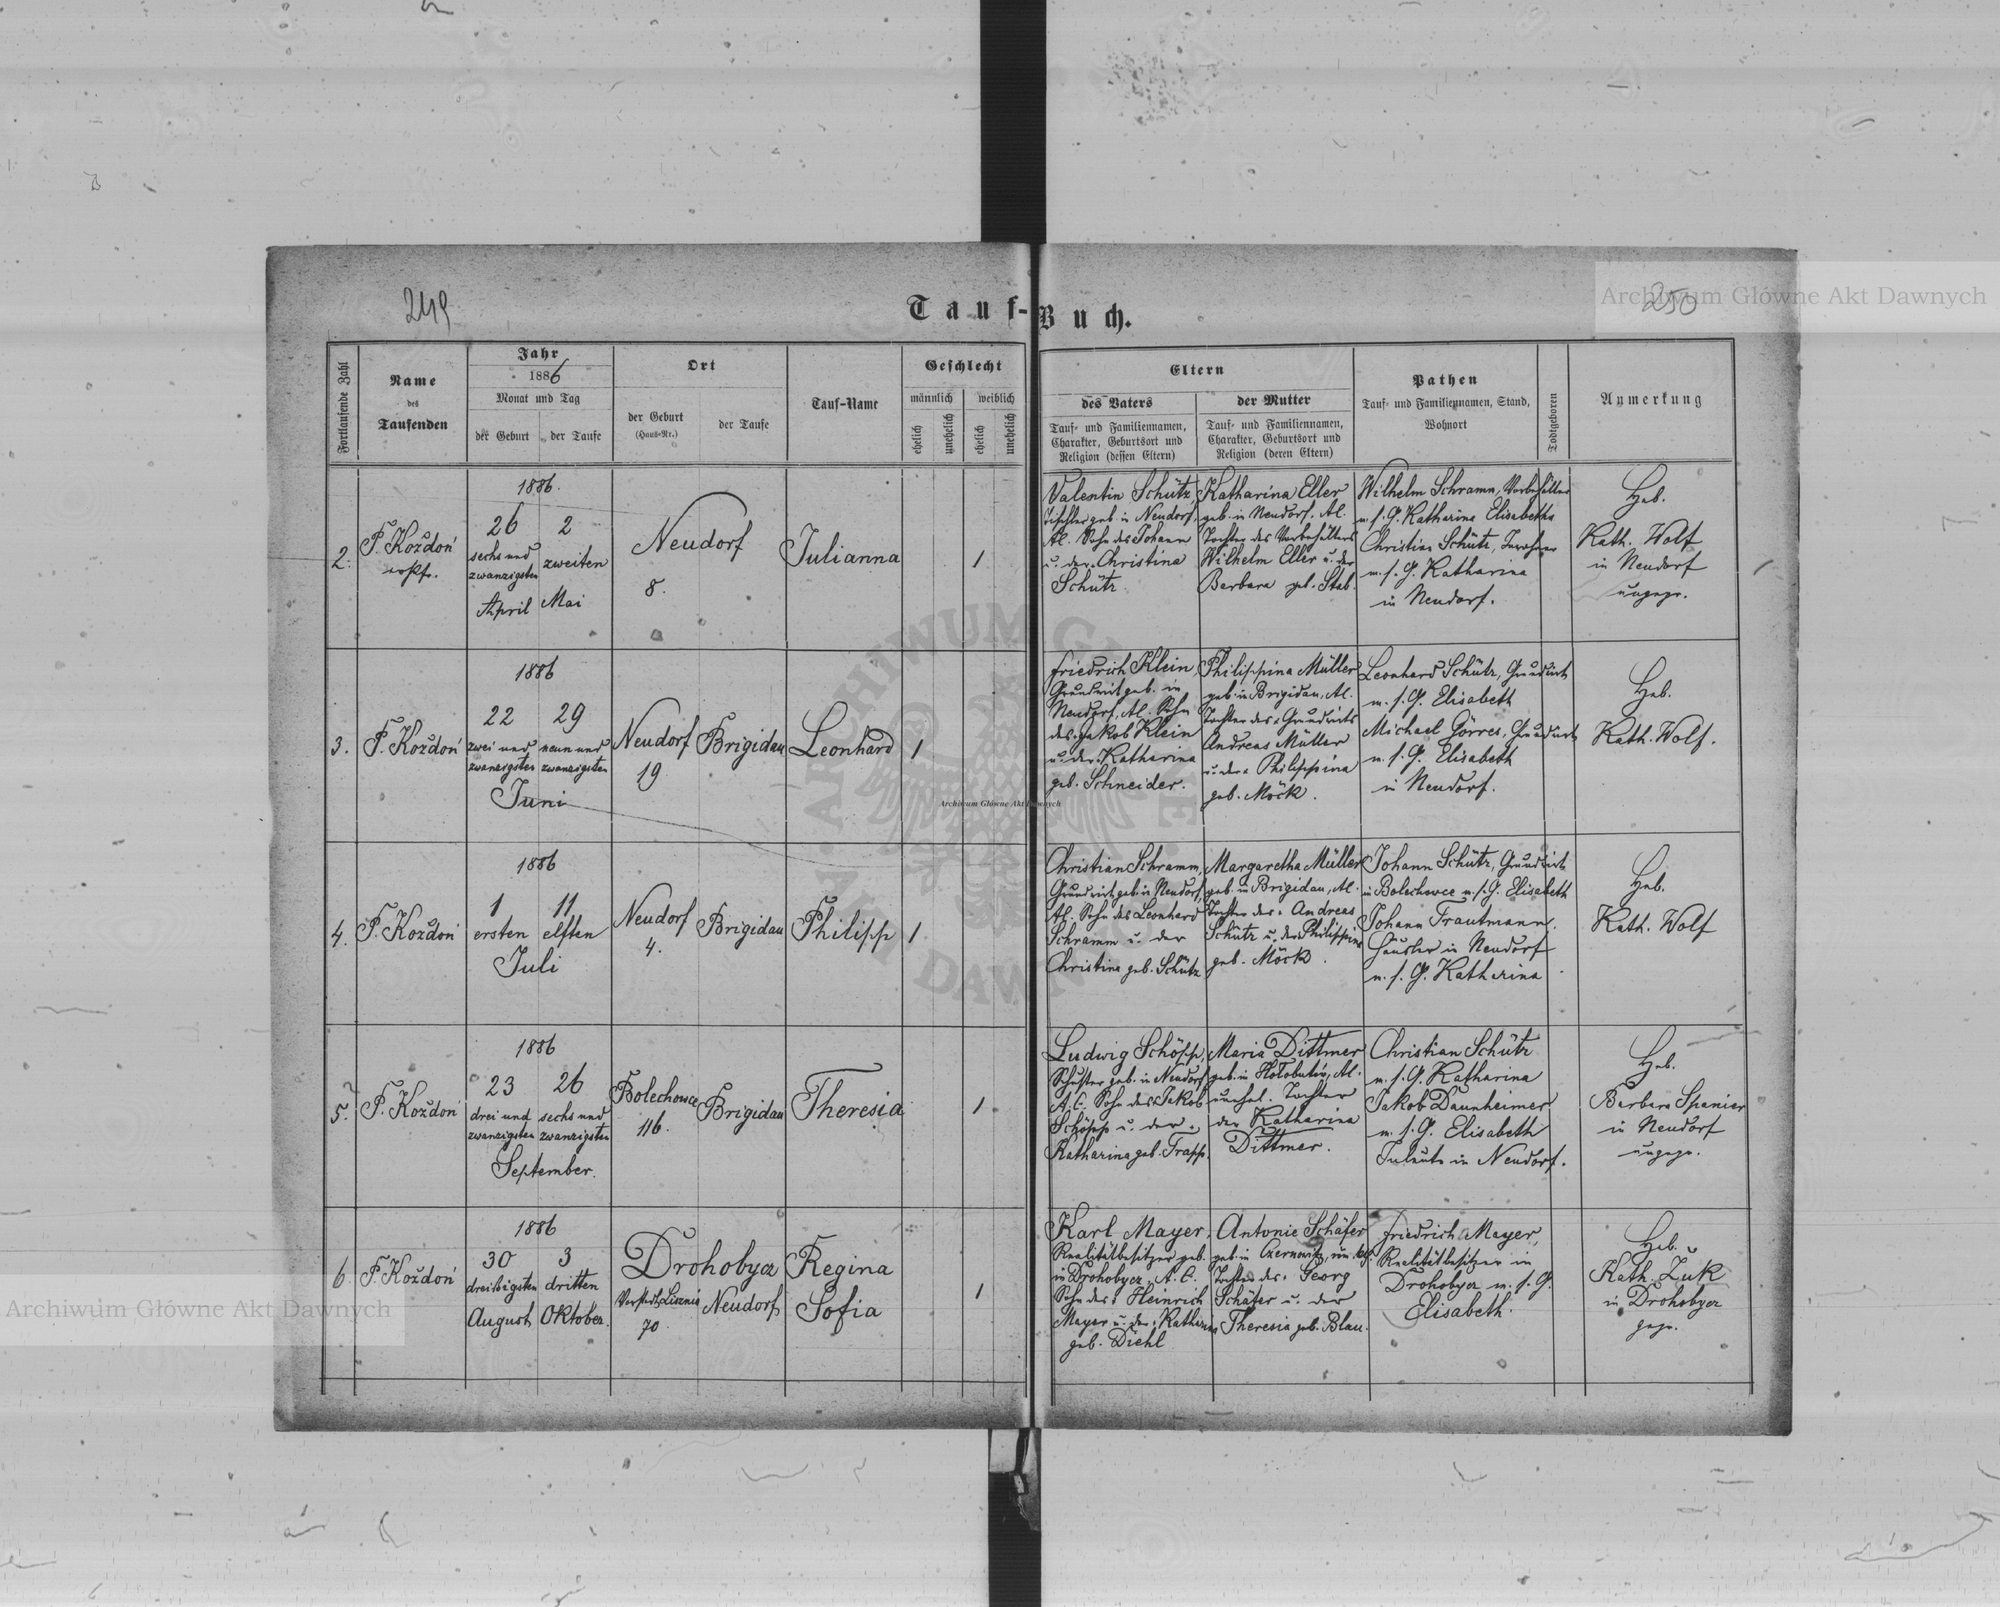 249
250
Archiwum Główne Akt Dawnych
Tauf-Buch.
Fortlaufende Zahl
Name
des
Taufenden
Jahr
1886
Monat und Tag
der Geburt
der Taufe
Ort
der Geburt
(Haus-Nr.)
der Taufe
Tauf-Name
Geschlecht
männlich
weiblich
ehelich
unehelich
ehelich
unehelich
Eltern
des Vaters
Tauf- und Familiennamen,
Charakter, Geburtsort und
Religion (dessen Eltern)
der Mutter
Tauf- und Familiennamen,
Charakter, Geburtsort und
Religion (deren Eltern)
Pathen
Tauf- und Familiennamen, Stand,
Wohnort
Todtgeboren
Anmerkung
2.
P. Kożdoń
1886.
26
sechs und
zwanzigsten
April
2
zweiten
Mai
Neudorf
8.
Julianna
1
Valentin Schütz,
Tischler geb. in Neudorf,
Al. Sohn des Johann
u. der Christina
Schütz.
Katharina Eller
geb. in Neudorf, Al.
Tochter des Vorbehälters
Wilhelm Eller u. der
Barbara geb. Stab.
Wilhelm Schramm, Vorbehälter
m. s. G. Katharina Elisabetha
Christian Schütz, Inwohner
m. s. G. Katharina
in Neudorf.
Heb.
Kath. Wolf
in Neudorf
ungepr.
3.
P. Kożdoń
1886
22
zwei und
zwanzigsten
29
neun und
zwanzigsten
Juni
Neudorf
19
Brigidau
Leonhard
1
Friedrich Klein,
Grundwirt geb. in
Neudorf, Al. Sohn
des Jakob Klein
u. der Katharina
geb. Schneider.
Philippina Müller
geb. in Brigidau, Al.
Tochter des Grundwirts
Andreas Müller
u. der Philippina
geb. Möck.
Leonhard Schütz, Grundwirt
m. s. G. Elisabeth
Michael Görres, Grundwirt
m. s. G. Elisabeth
in Neudorf.
Heb.
Kath. Wolf.
Archiwum Główne Akt Dawnych
4.
P. Kożdoń
1886
1
ersten
11
elften
Juli
Neudorf
4.
Brigidau
Philipp
1
Christian Schramm,
Grundwirt geb. in Neudorf,
Al. Sohn des Leonhard
Schramm u. der
Christina geb. Schütz
Margaretha Müller
geb. in Brigidau, Al.
Tochter des Andreas
Schütz u. der Philippina
geb. Möck.
Johann Schütz, Grundwirt
in Bolechowce m. s. G. Elisabeth
Johann Trautmann,
Häusler in Neudorf
m. s. G. Katharina
Heb.
Kath. Wolf
5.
P. Kożdoń
1886
23
drei und
zwanzigsten
26
sechs und
zwanzigsten
September.
Bolechowce
116.
Brigidau
Theresia
1
Ludwig Schöpp,
Schuster geb. in Neudorf
A. C. Sohn des Jakob
Schöpp u. der
Katharina geb. Trapp.
Maria Dittmer
geb. in Hołobutów, Al.
unehel. Tochter
der Katharina
Dittmer.
Christian Schütz
m. s. G. Katharina
Jakob Daunheimer
m. s. G. Elisabeth
Inleute in Neudorf.
Heb.
Barbara Spanier
in Neudorf
ungepr.
6.
P. Kożdoń
1886
30
dreißigsten
August
3
dritten
Oktober.
Drohobycz
Vorstadt Lisznia
70
Neudorf
Regina
Sofia
1
Karl Mayer,
Realitätbesitzer geb.
in Drohobycz, A. C.
Sohn des Heinrich
Mayer u. der Katharina
geb. Diehl
Antonie Schäfer
geb. in Czernowitz, röm. kath.
Tochter des Georg
Schäfer u. der
Theresia geb. Blau.
Friedrich Mayer,
Realitätbesitzer in
Drohobycz m. s. G.
Elisabeth.
Heb.
Kath. Żuk
in Drohobycz
gepr.
Archiwum Główne Akt Dawnych